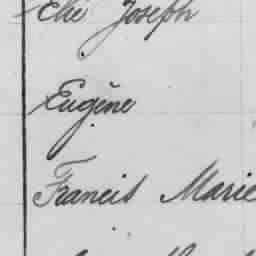 Elie Joseph
Eugène
Francis Marie